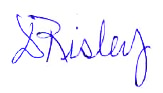 S Risley